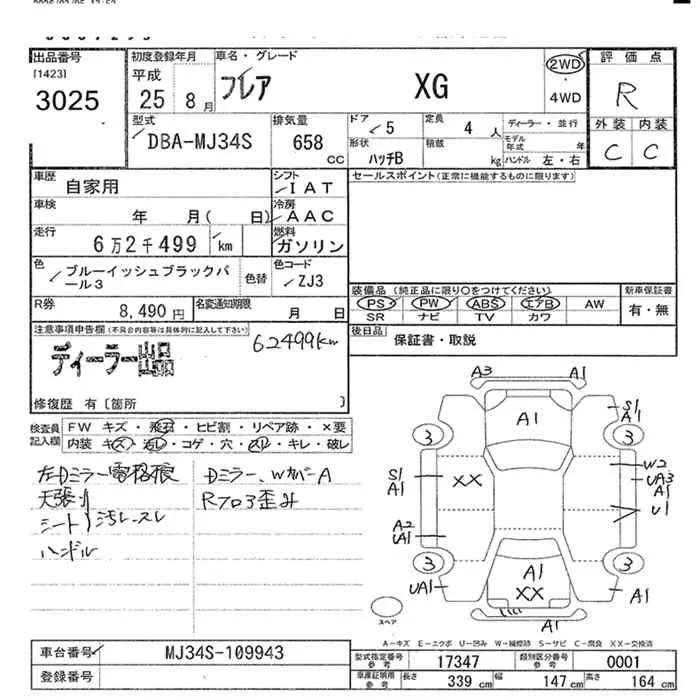 出品番号
[1423]
3025
初度登録年月
平成
25 8月
車名・グレード
フレア XG
2WD
・
4WD
評価点
R
外装 内装
C C
型式
DBA-MJ34S
排気量
658
CC
ドア
5
形状
ハッチB
定員
4人
積載
kg
ディーラー・並行
モデル
年式 年
ハンドル 左・右
車歴
自家用
シフト
IAT
車検
年 月( 日)
冷房
AAC
走行
6万2千499 km
燃料
ガソリン
色
ブルーイッシュブラックパ
ール3
色替
色コード
ZJ3
R券
8,490円
名変通知期限
月 日
セールスポイント(正常に機能するものに限ります)
装備品(純正品に限り○をつけてください)
PS PW ABS エアB AW
SR ナビ TV カワ
新車保証書
有・無
後日品
保証書・取説
注意事項申告欄(不具合内容等は具体的に記入して下さい)
ディーラー出品
62499km
修復歴 有〔箇所 〕
検査員
記入欄
FW キズ・飛石・ヒビ割・リペア跡・×要
内装 キズ・汚し・コゲ・穴・スリ・キレ・破レ
左Dミラー電格痕
天張り
シート 汚レ・スレ
ハンドル
Dミラー、WカバーA
Rフロア歪み
A3 A1
A1
S1
A1
3 3
W2
UA3
A1
U1
S1
A1
XX
A2
UA1
3 3
UA1
A1
XX
A1
A1
スペア
A-キズ E-エクボ U-凹み W-補修跡 S-サビ C-腐食 XX-交換済
車台番号
MJ34S-109943
登録番号
型式指定番号
参考
17347
類別区分番号
参考
0001
車庫証明用
参考
長さ 339 cm 幅 147 cm 高さ 164 cm